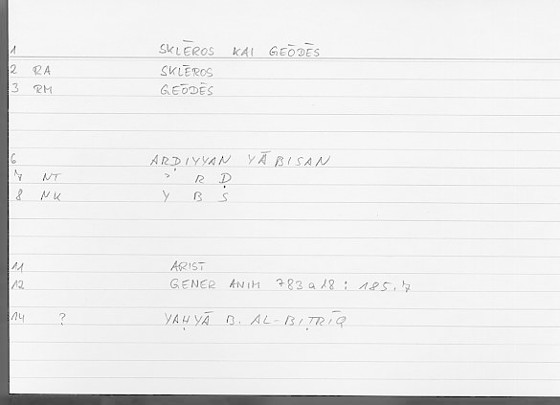 1 SKLĒROS KAI GEŌDĒS
2 RA SKLĒROS
3 RM GEŌDĒS
6 ARḌIYYAN YĀBISAN
7 NT ʾ R Ḍ
8 NK Y B S
11 ARIST
12 GENER ANIM 783a18 : 185.7
14 ? YAḤYĀ B. AL-BIṬRĪQ